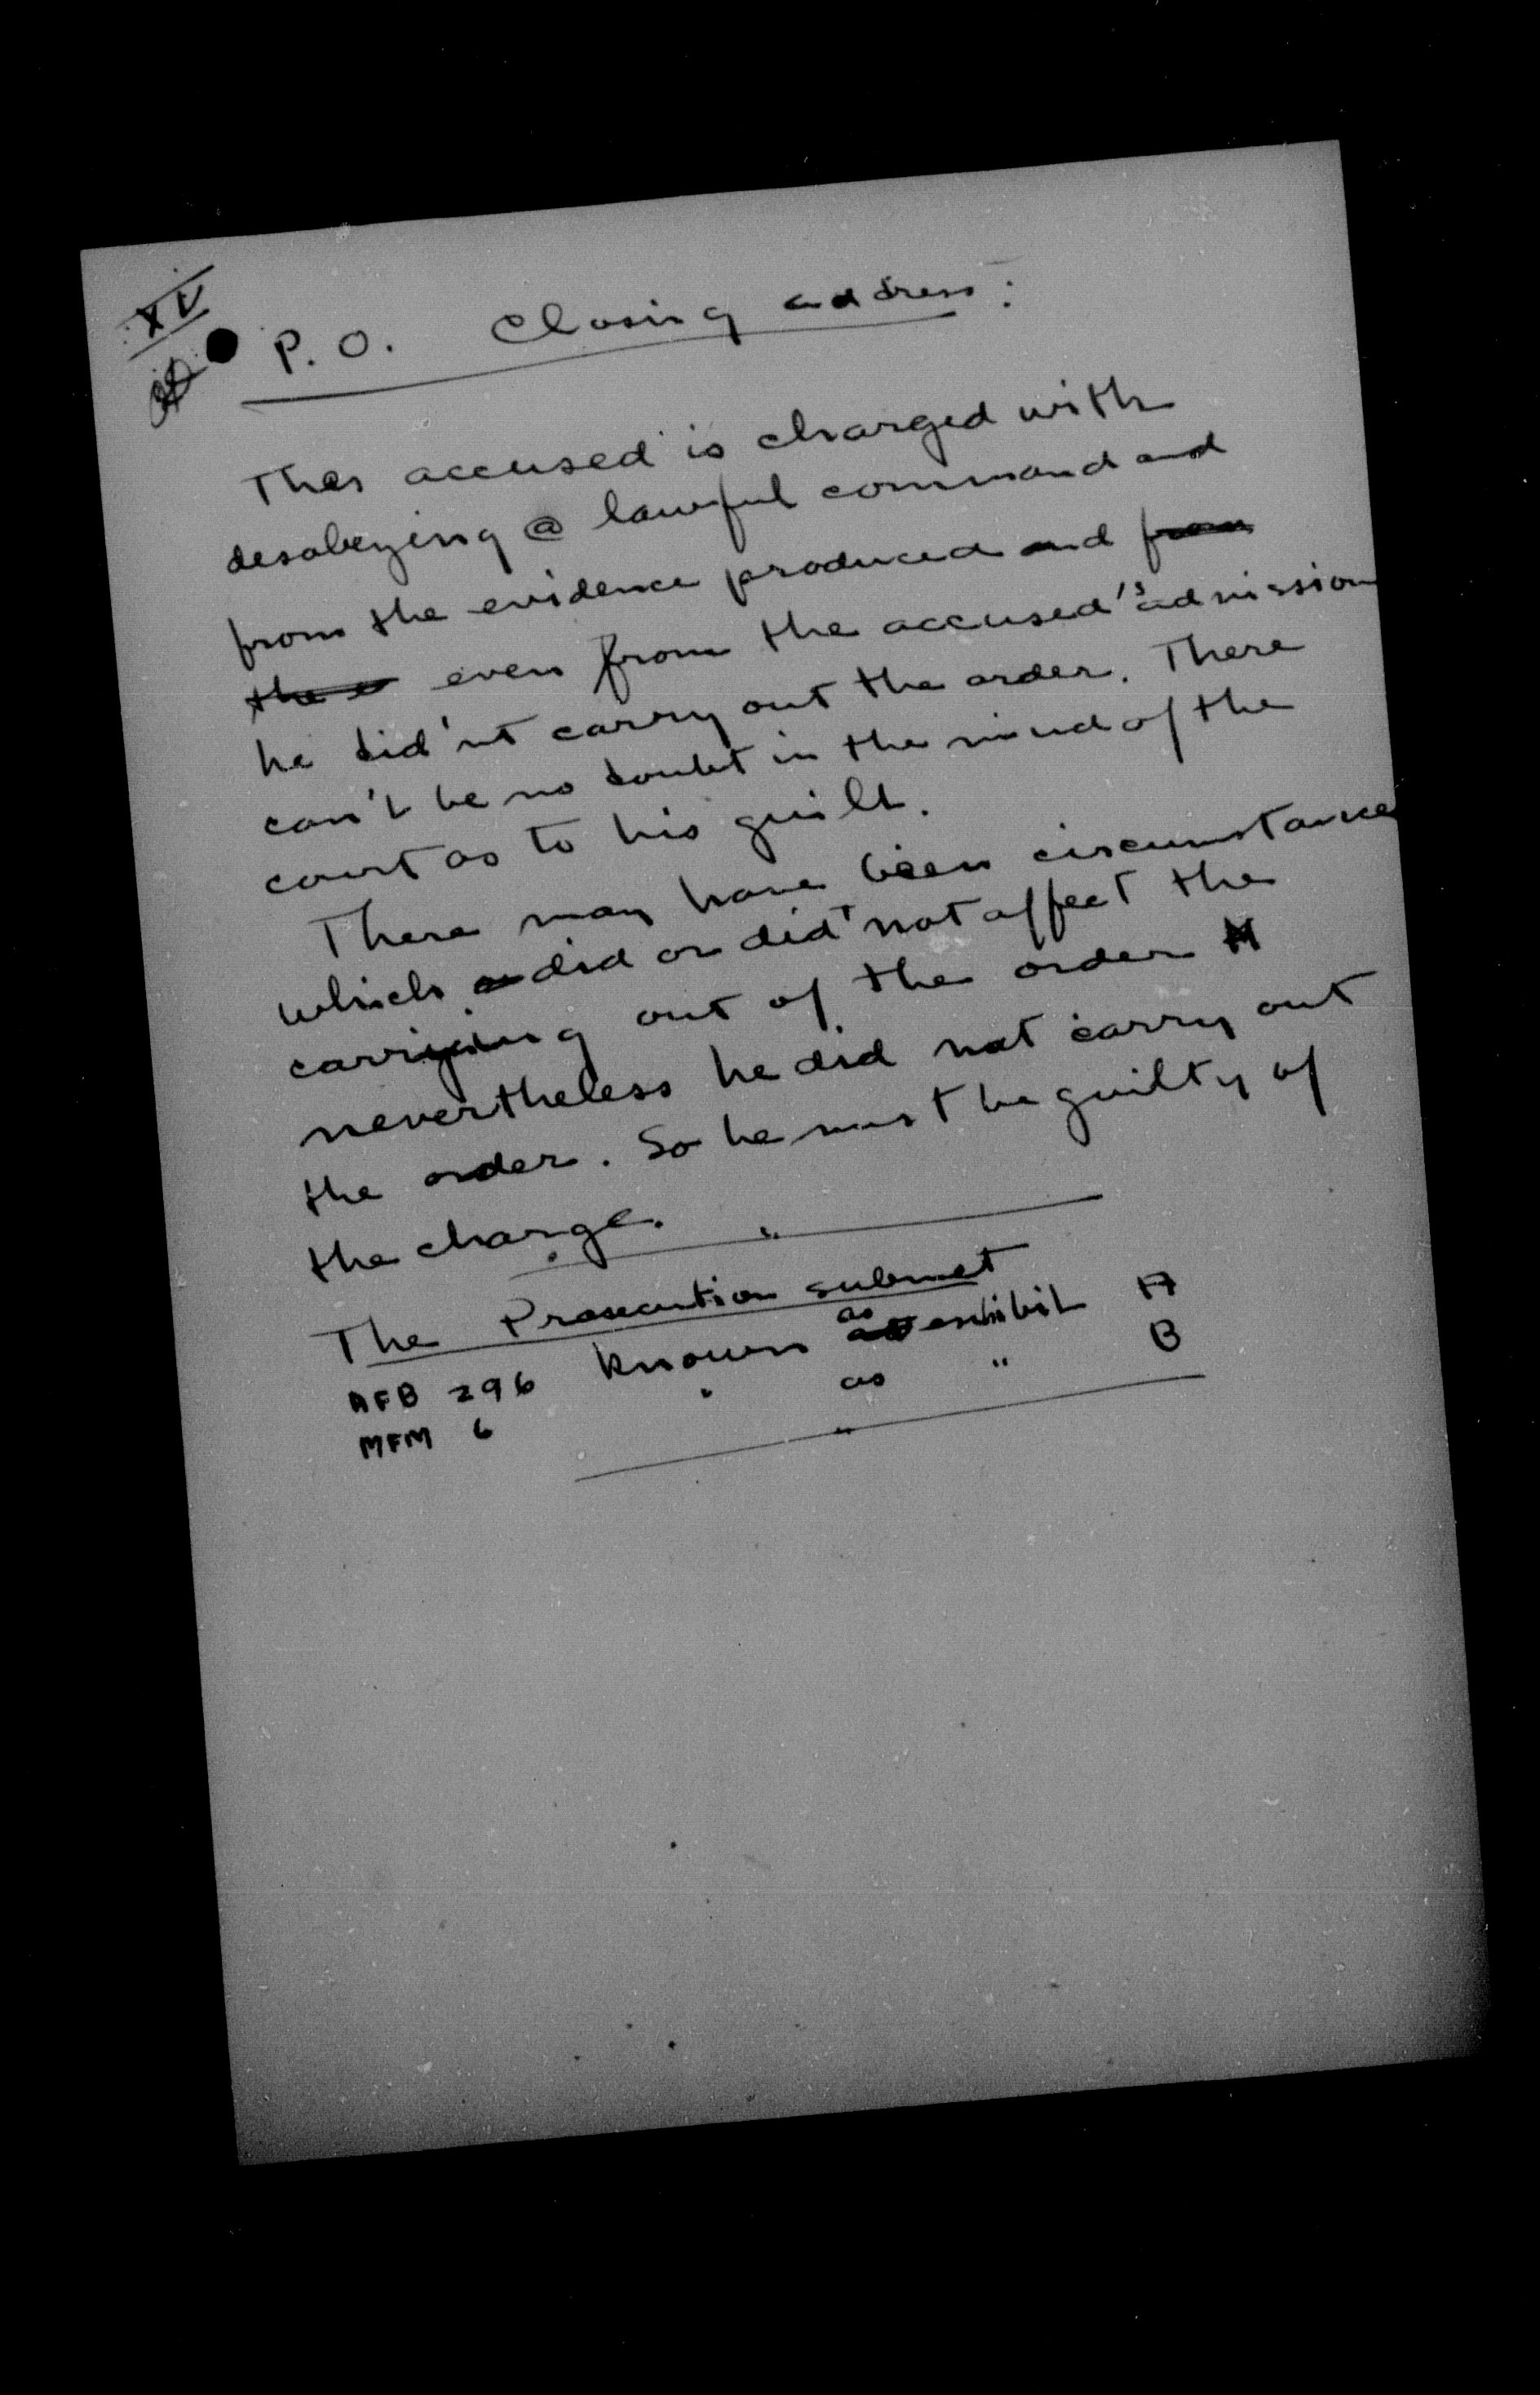 XV
P.O. Closing address:
The accused is charged with
desobeying a lawful command and
from the evidence produced and from
the e even from the accused's admission
he did'nt carry out the order. There
can't be no doubt in the mind of the
court as to his guilt.
There may have been circumstance
which did or did not affect the
carrying out of the order
nevertheless he did not carry out
the order. So he must be guilty of
the charge.
The Prosecution submet
AFB 296 Known as exhibit A
MFM 6 " as " B